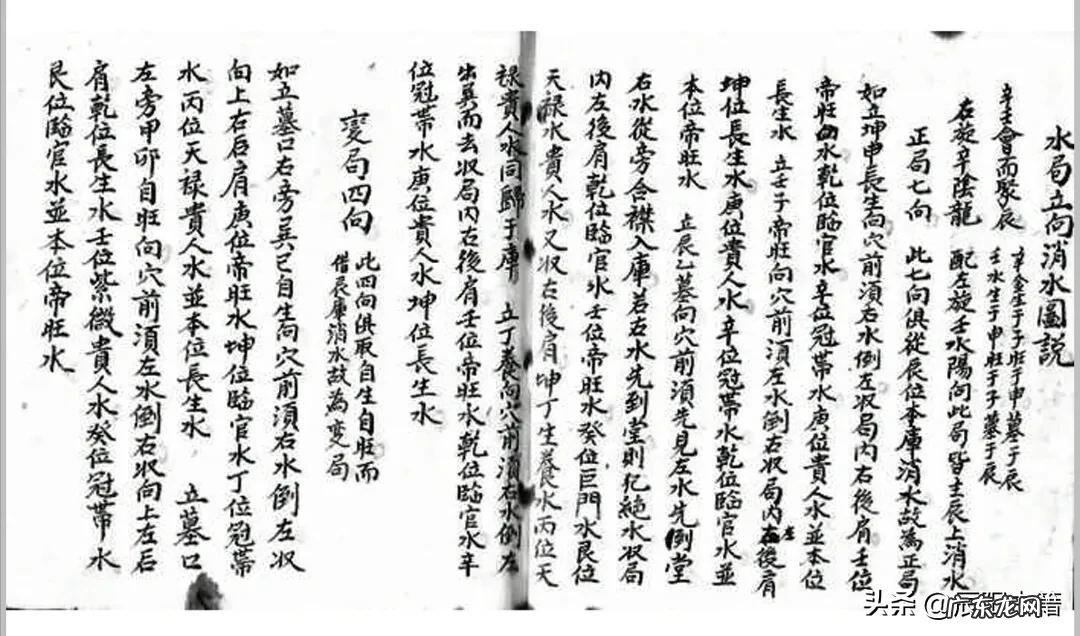 水局立向消水圖說
辛壬會而聚辰 辛金生于子旺于申墓于辰
壬水生于申旺于子墓于辰
右旋辛陰龍 配左旋壬水陽向此局皆主辰上消水
正局七向 此七向俱從辰位本庫消水故為正局
如立坤申長生向穴前須右水倒左収局内右後肩壬位
帝旺水乾位臨官水辛位冠帶水庚位貴人水並本位
長生水 立壬子帝旺向穴前須左水倒右収局内左後肩
坤位長生水庚位貴人水辛位冠帶水乾位臨官水並
本位帝旺水 立辰乙墓向穴前須先見左水先倒堂
右水從旁合襟入庫若右水先到堂則犯絶水収局
内左後肩乾位臨官水壬位帝旺水癸位巨門水艮位
天禄水貴人水又収右後肩坤丁生養水丙位天
禄貴人水同歸于庫 立丁養向穴前須右水倒左
出巽而去収局内右後肩壬位帝旺水乾位臨官水辛
位冠帶水庚位貴人水坤位長生水
變局四向 此四向俱取自生自旺而
借辰庫消水故為變局
如立墓口右旁巽巳自生向穴前須右水倒左収
向上右后肩庚位帝旺水坤位臨官水丁位冠帶
水丙位天禄貴人水並本位長生水 立墓口
左旁甲卯自旺向穴前須左水倒右収向上左后
肩乾位長生水壬位紫微貴人水癸位冠帶水
艮位臨官水並本位帝旺水
头条 @广东龙网